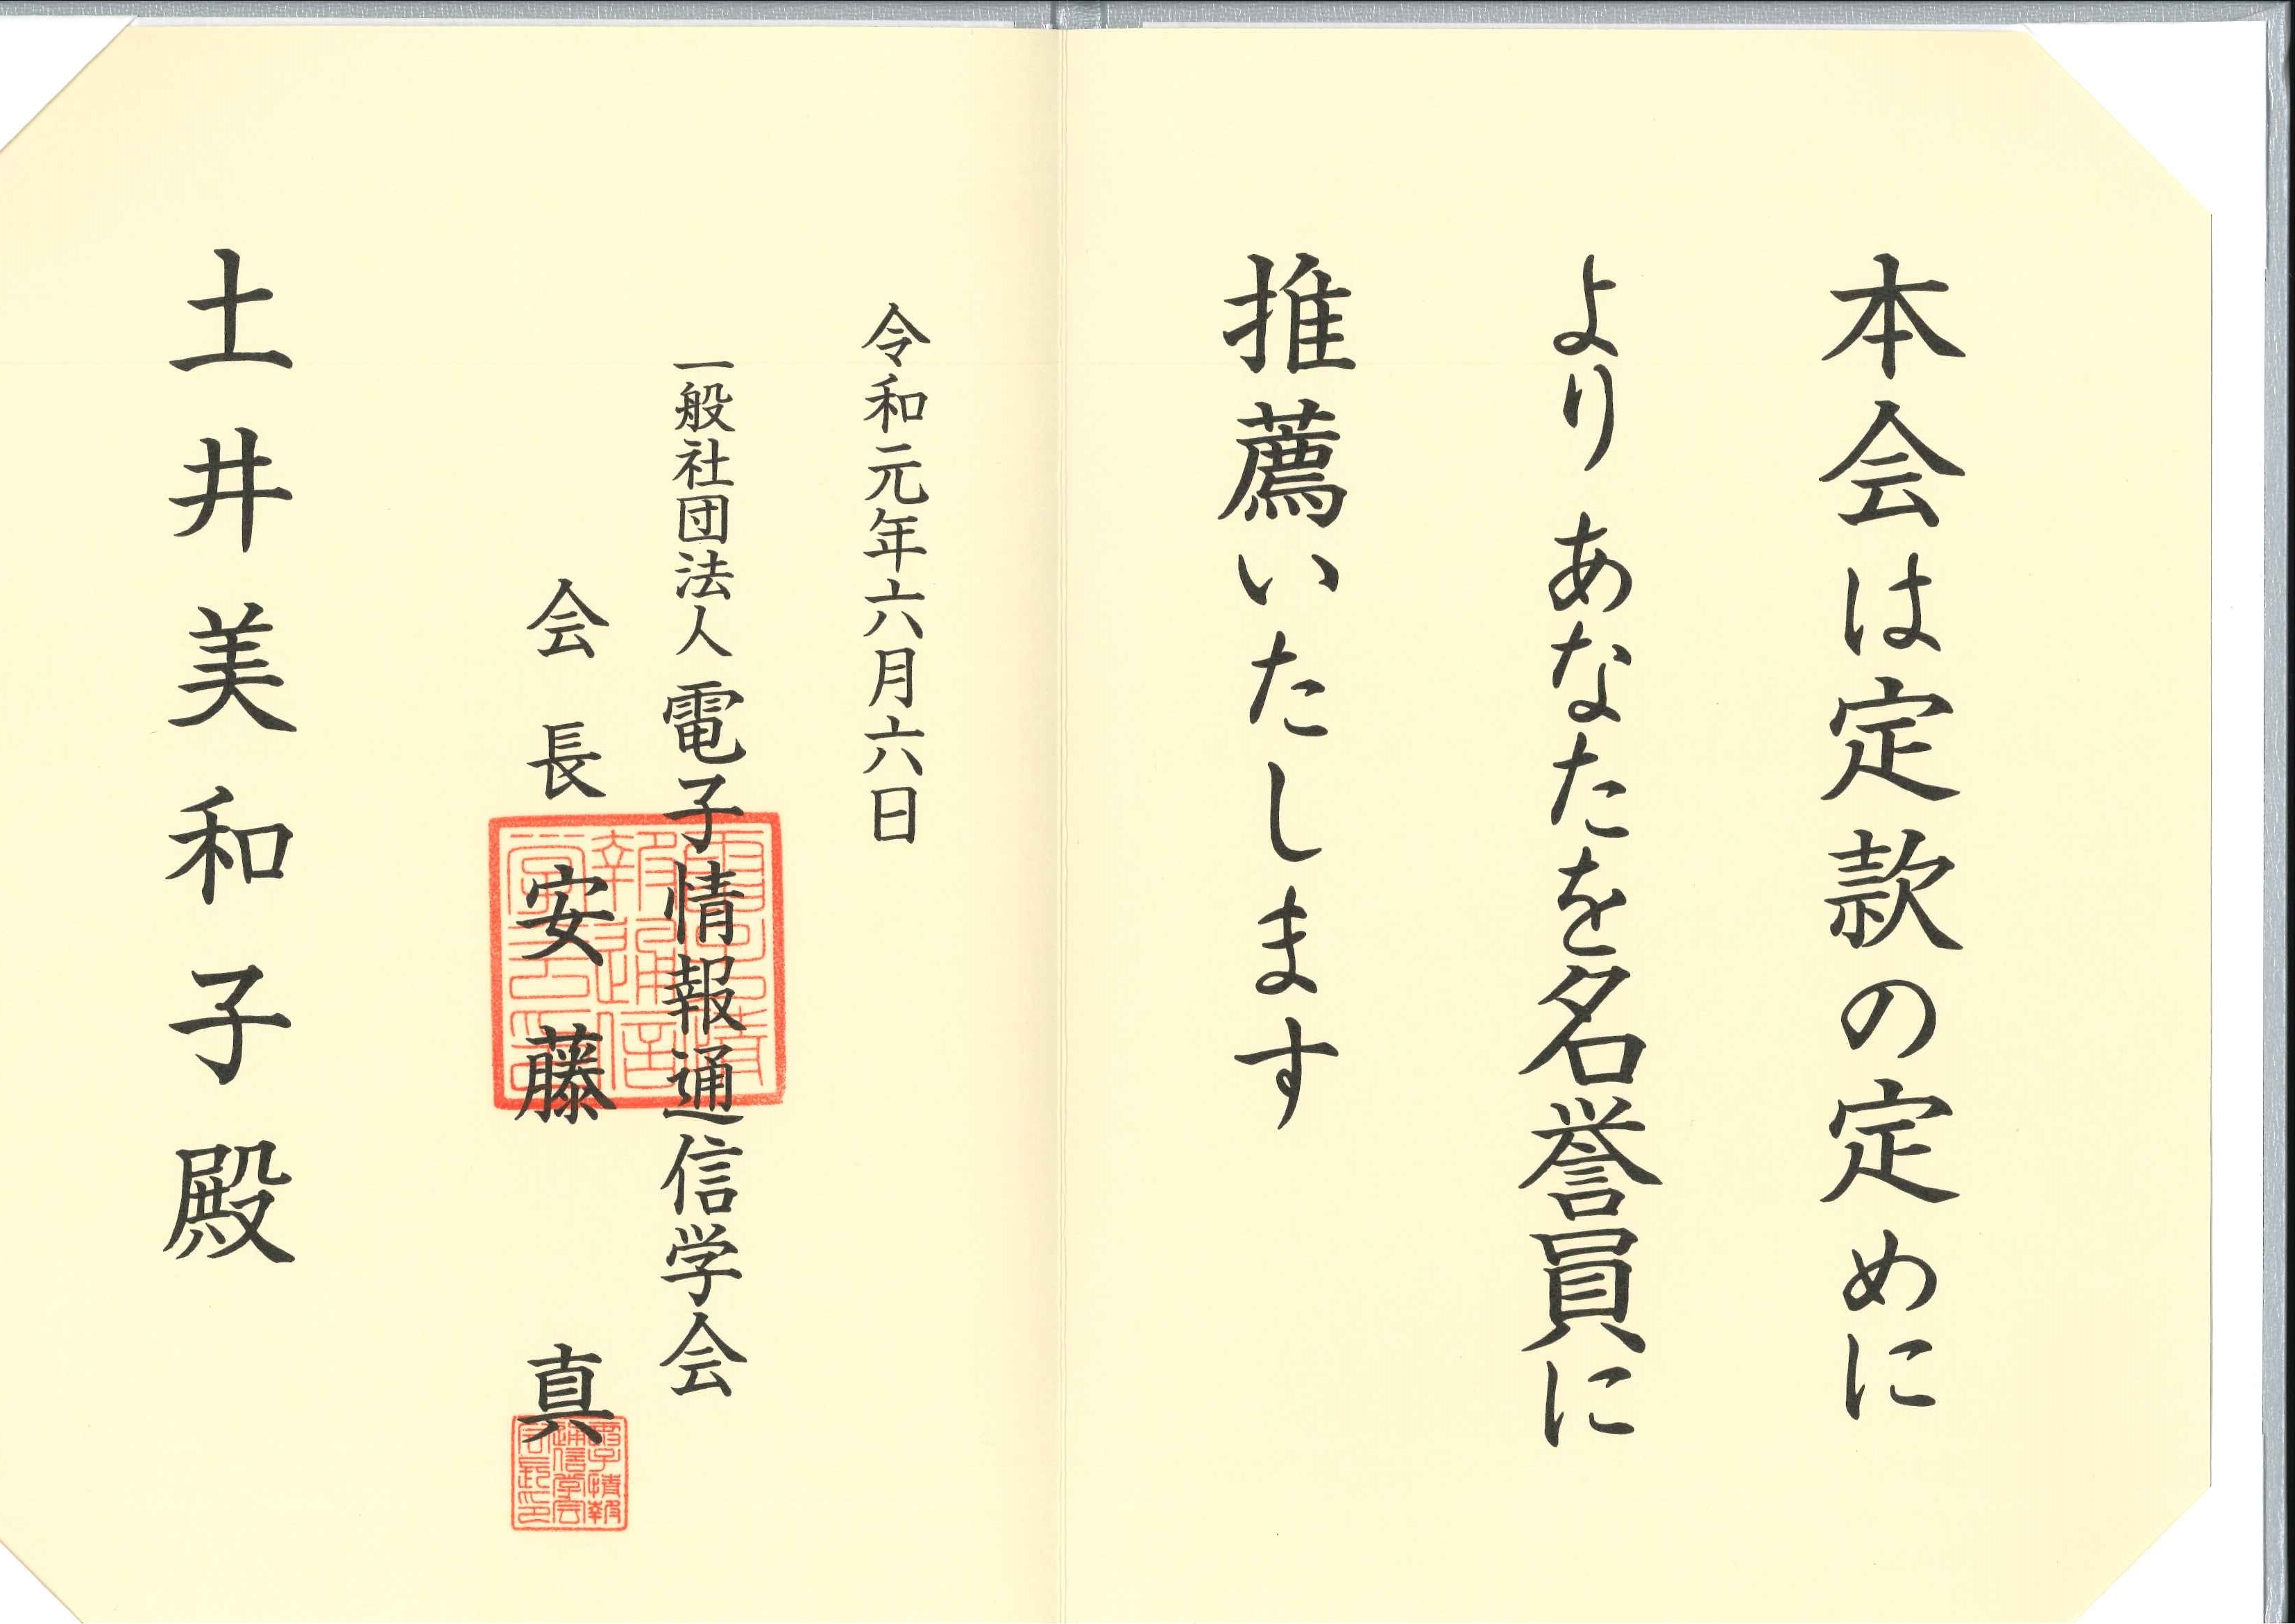 本会は定款の定めに
より あなたを名誉員に
推薦いたします
令和元年六月六日
一般社団法人 電子情報通信学会
会長 安藤 真
土井美和子殿
電子情報通信学会会長印